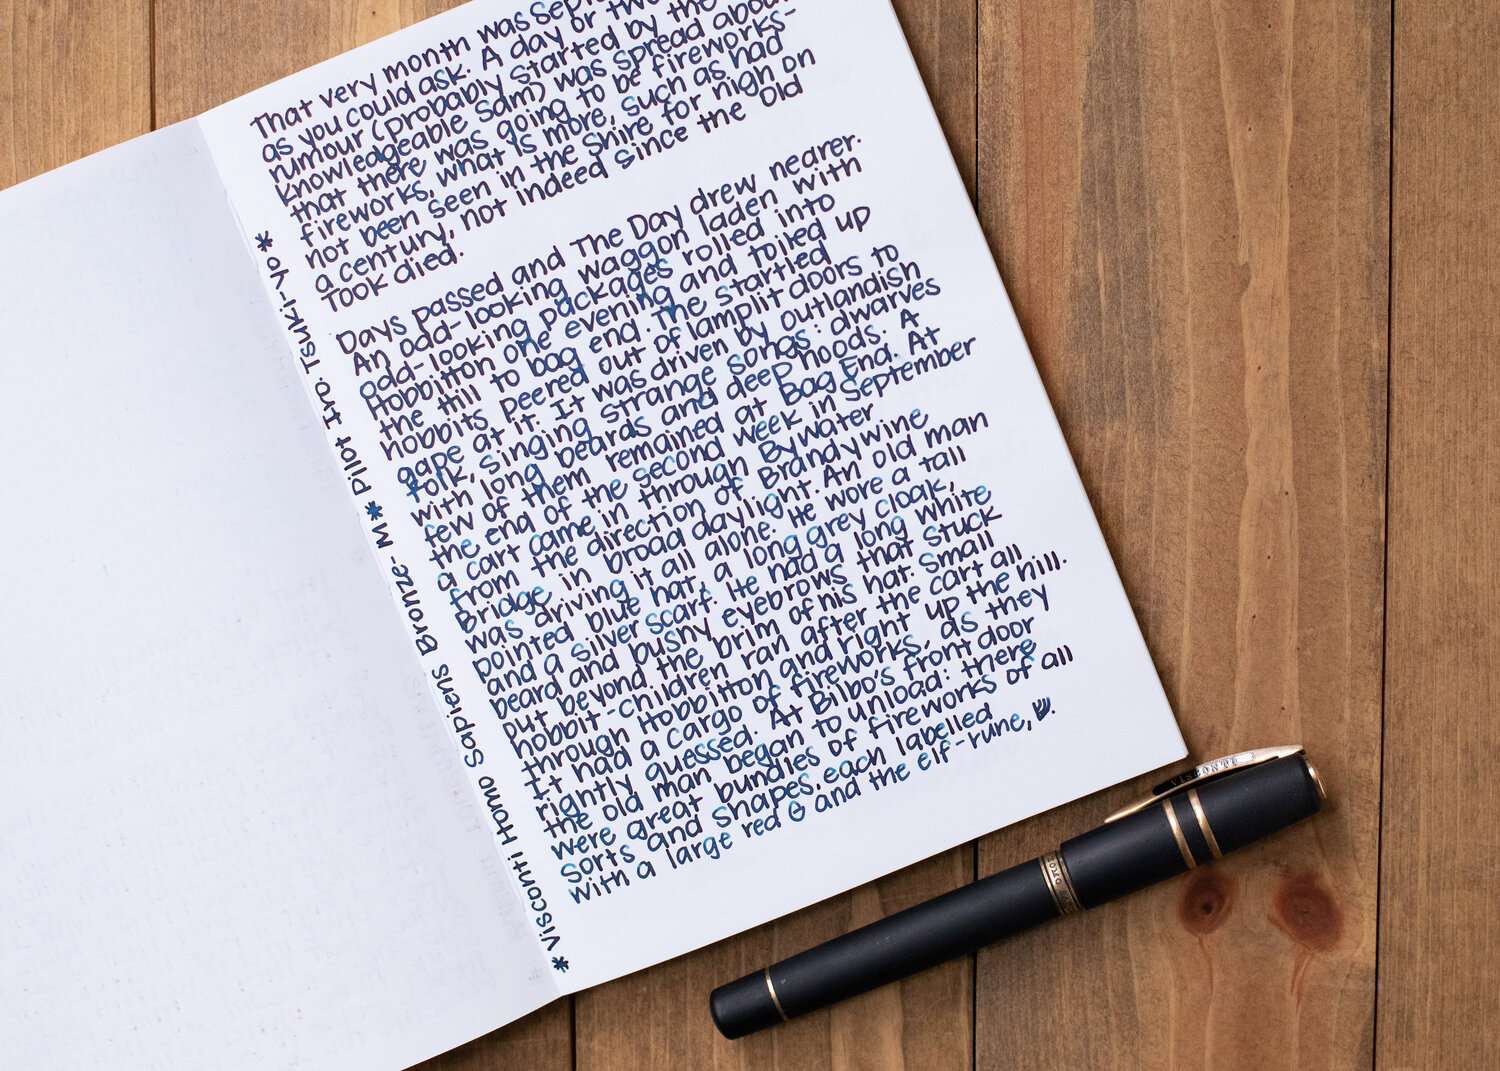 That very month was Sep
as you could ask. A day or two
rumour (probably started by the
knowledgeable Sam) was spread about
that there was going to be fireworks-
fireworks, what is more, such as had
not been seen in the Shire for nigh on
a century, not indeed since the Old
Took died.
Days passed and The Day drew nearer.
An odd-looking waggon laden with
odd-looking packages rolled into
Hobbitton one evening and toiled up
the Hill to bag end. The startled
hobbits peered out of lamplit doors to
gape at it. It was driven by outlandish
folk, singing strange songs: dwarves
with long beards and deep hoods. A
few of them remained at Bag End. At
the end of the second week in September
a cart came in through Bywater
from the direction of Brandywine
Bridge in broad daylight. An old man
was driving it all alone. He wore a tall
pointed blue hat, a long grey cloak,
and a silver scarf. He had a long white
beard and bushy eyebrows that stuck
out beyond the brim of his hat. Small
hobbit-children ran after the cart all
through Hobbitton and right up the hill.
It had a cargo of fireworks, as they
rightly guessed. At Bilbo's front door
the old man began to unload: there
were great bundles of fireworks of all
sorts and shapes, each labelled
with a large red G and the elf-rune,
* Visconti Homo Sapiens Bronze- M * Pilot Iro. Tsuki-yo *
VISCONTI